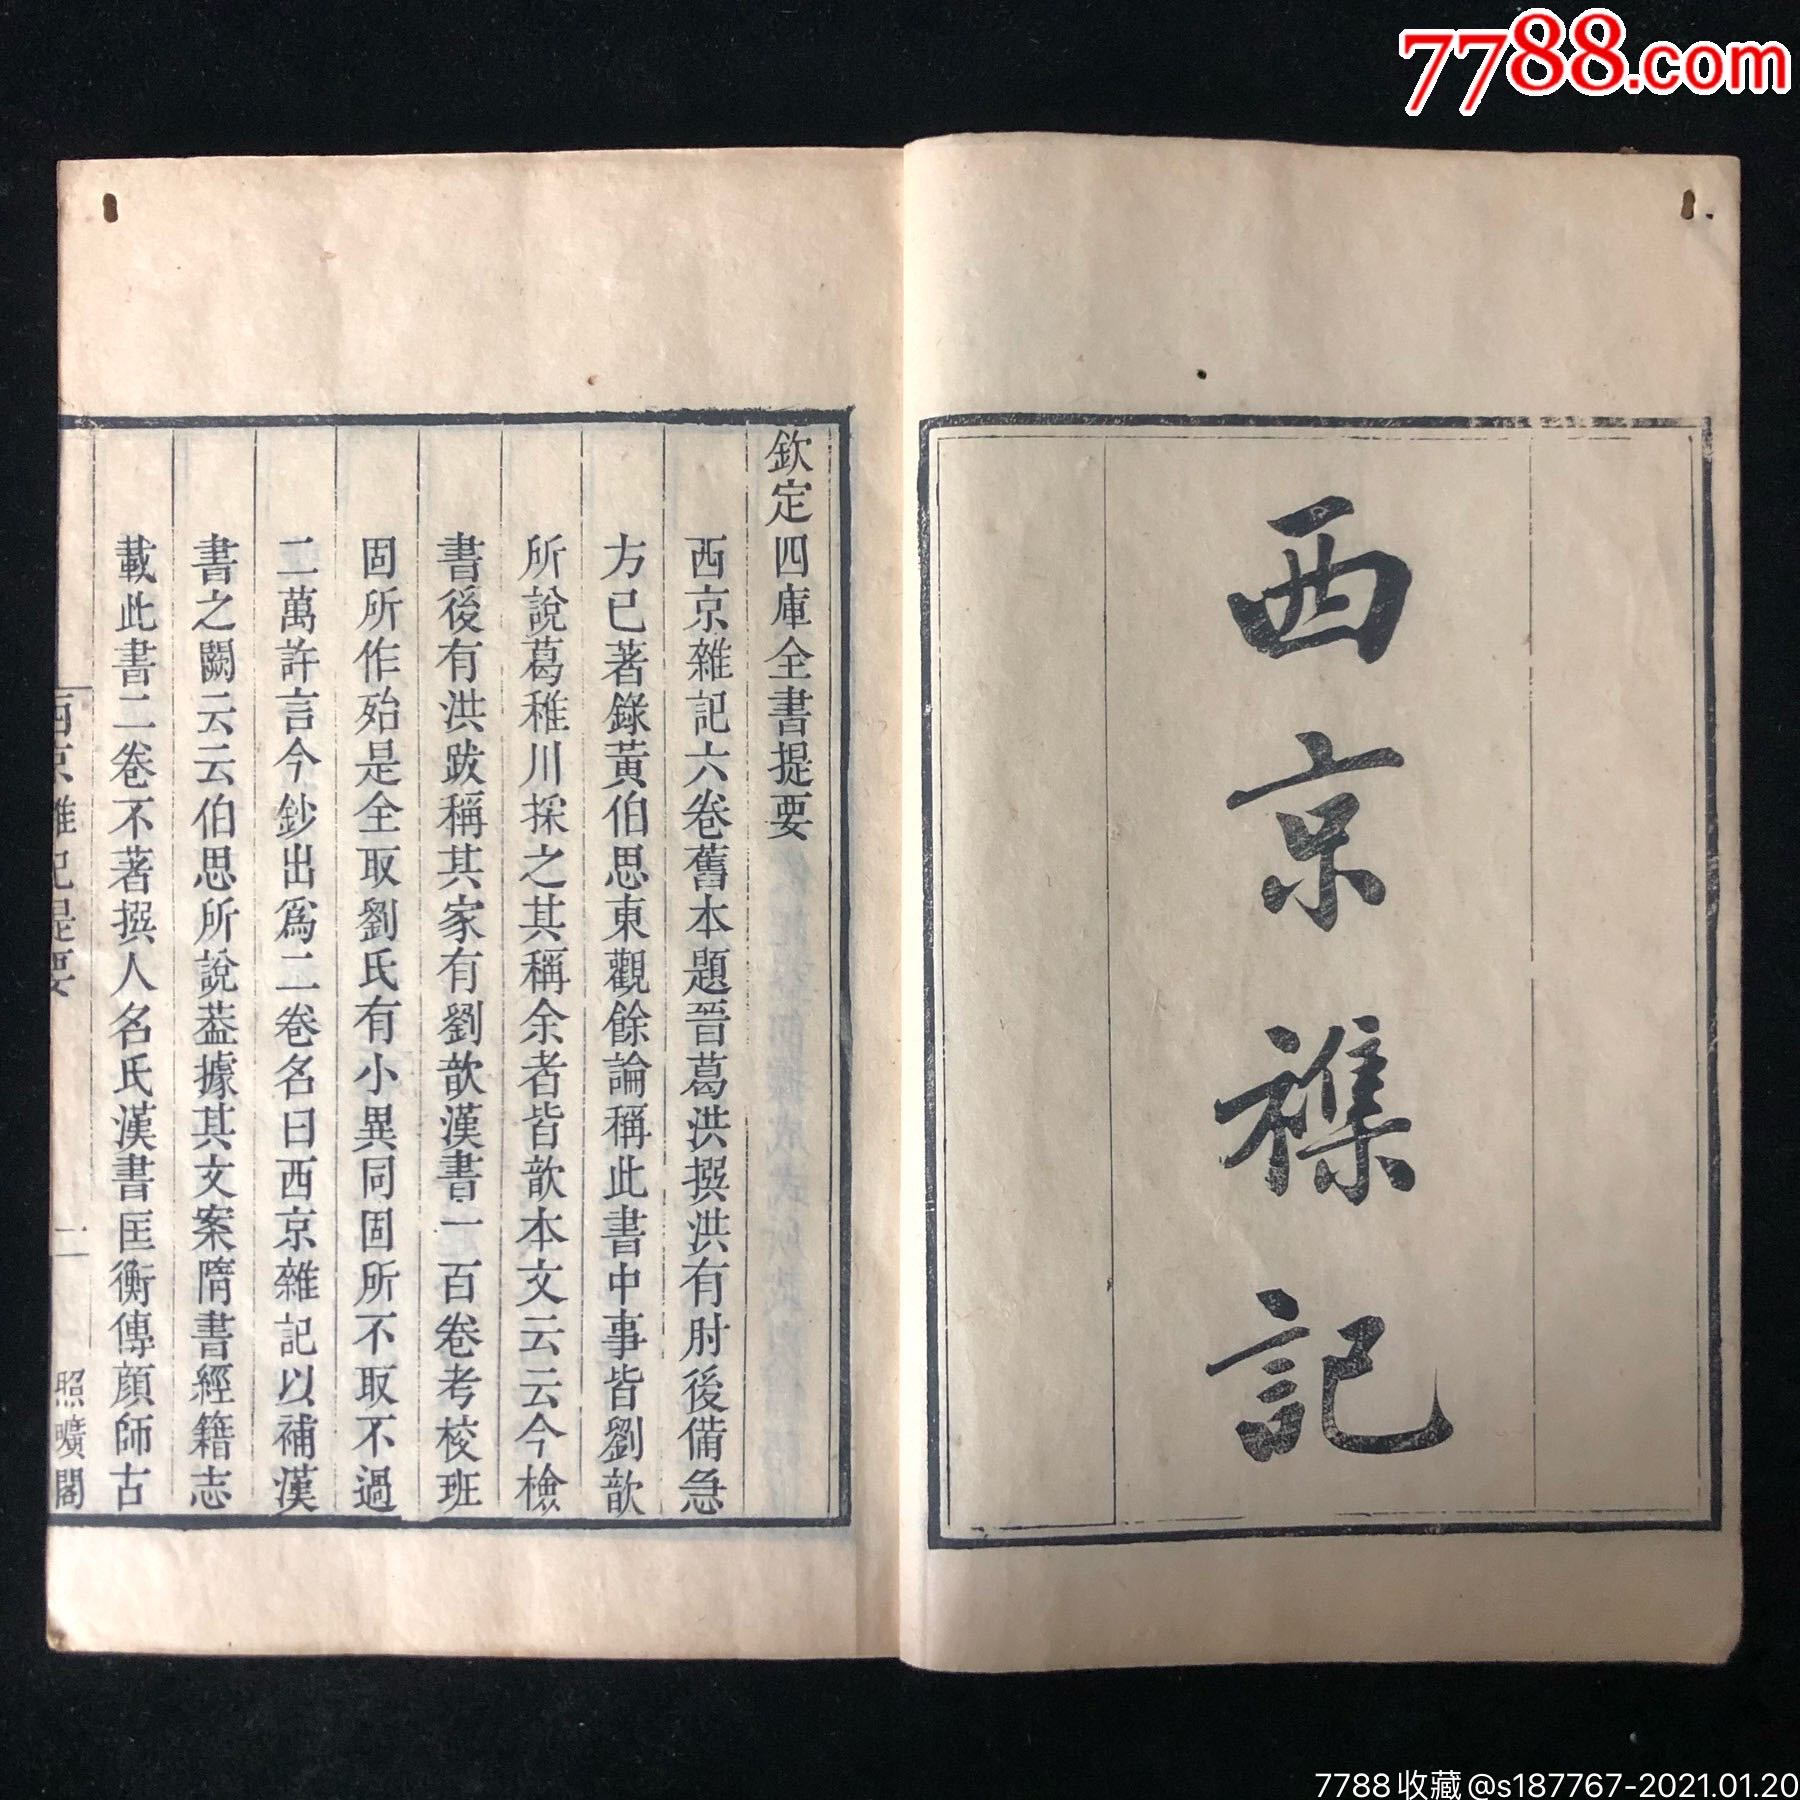 7788.com
西京襍記
欽定四庫全書提要
西京雜記六卷舊本題晉葛洪撰洪有肘後備急
方已著錄黃伯思東觀餘論稱此書中事皆劉歆
所說葛稚川採之其稱余者皆歆本文云云今檢
書後有洪跋稱其家有劉歆漢書一百卷考校班
固所作殆是全取劉氏有小異同固所不取不過
二萬許言今鈔出爲二卷名曰西京雜記以補漢
書之闕云云伯思所說葢據其文案隋書經籍志
載此書二卷不著撰人名氏漢書匡衡傳顏師古
西京雜記提要
二
照曠閣
7788收藏@s187767-2021.01.20